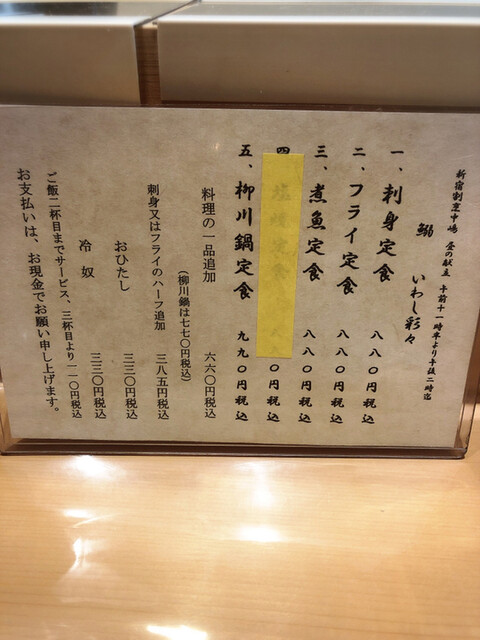 新宿割烹中嶋 昼の献立 午前十一時半より午後二時迄
鰯 いわし彩々
一、刺身定食 八八〇円税込
二、フライ定食 八八〇円税込
三、煮魚定食 八八〇円税込
四、塩焼定食 〇円税込
五、柳川鍋定食 九九〇円税込
料理の一品追加 六六〇円税込
（柳川鍋は七七〇円税込）
刺身又はフライのハーフ追加 三八五円税込
おひたし 三三〇円税込
冷奴 三三〇円税込
ご飯二杯目までサービス、三杯目より一一〇円税込
お支払いは、お現金でお願い申し上げます。